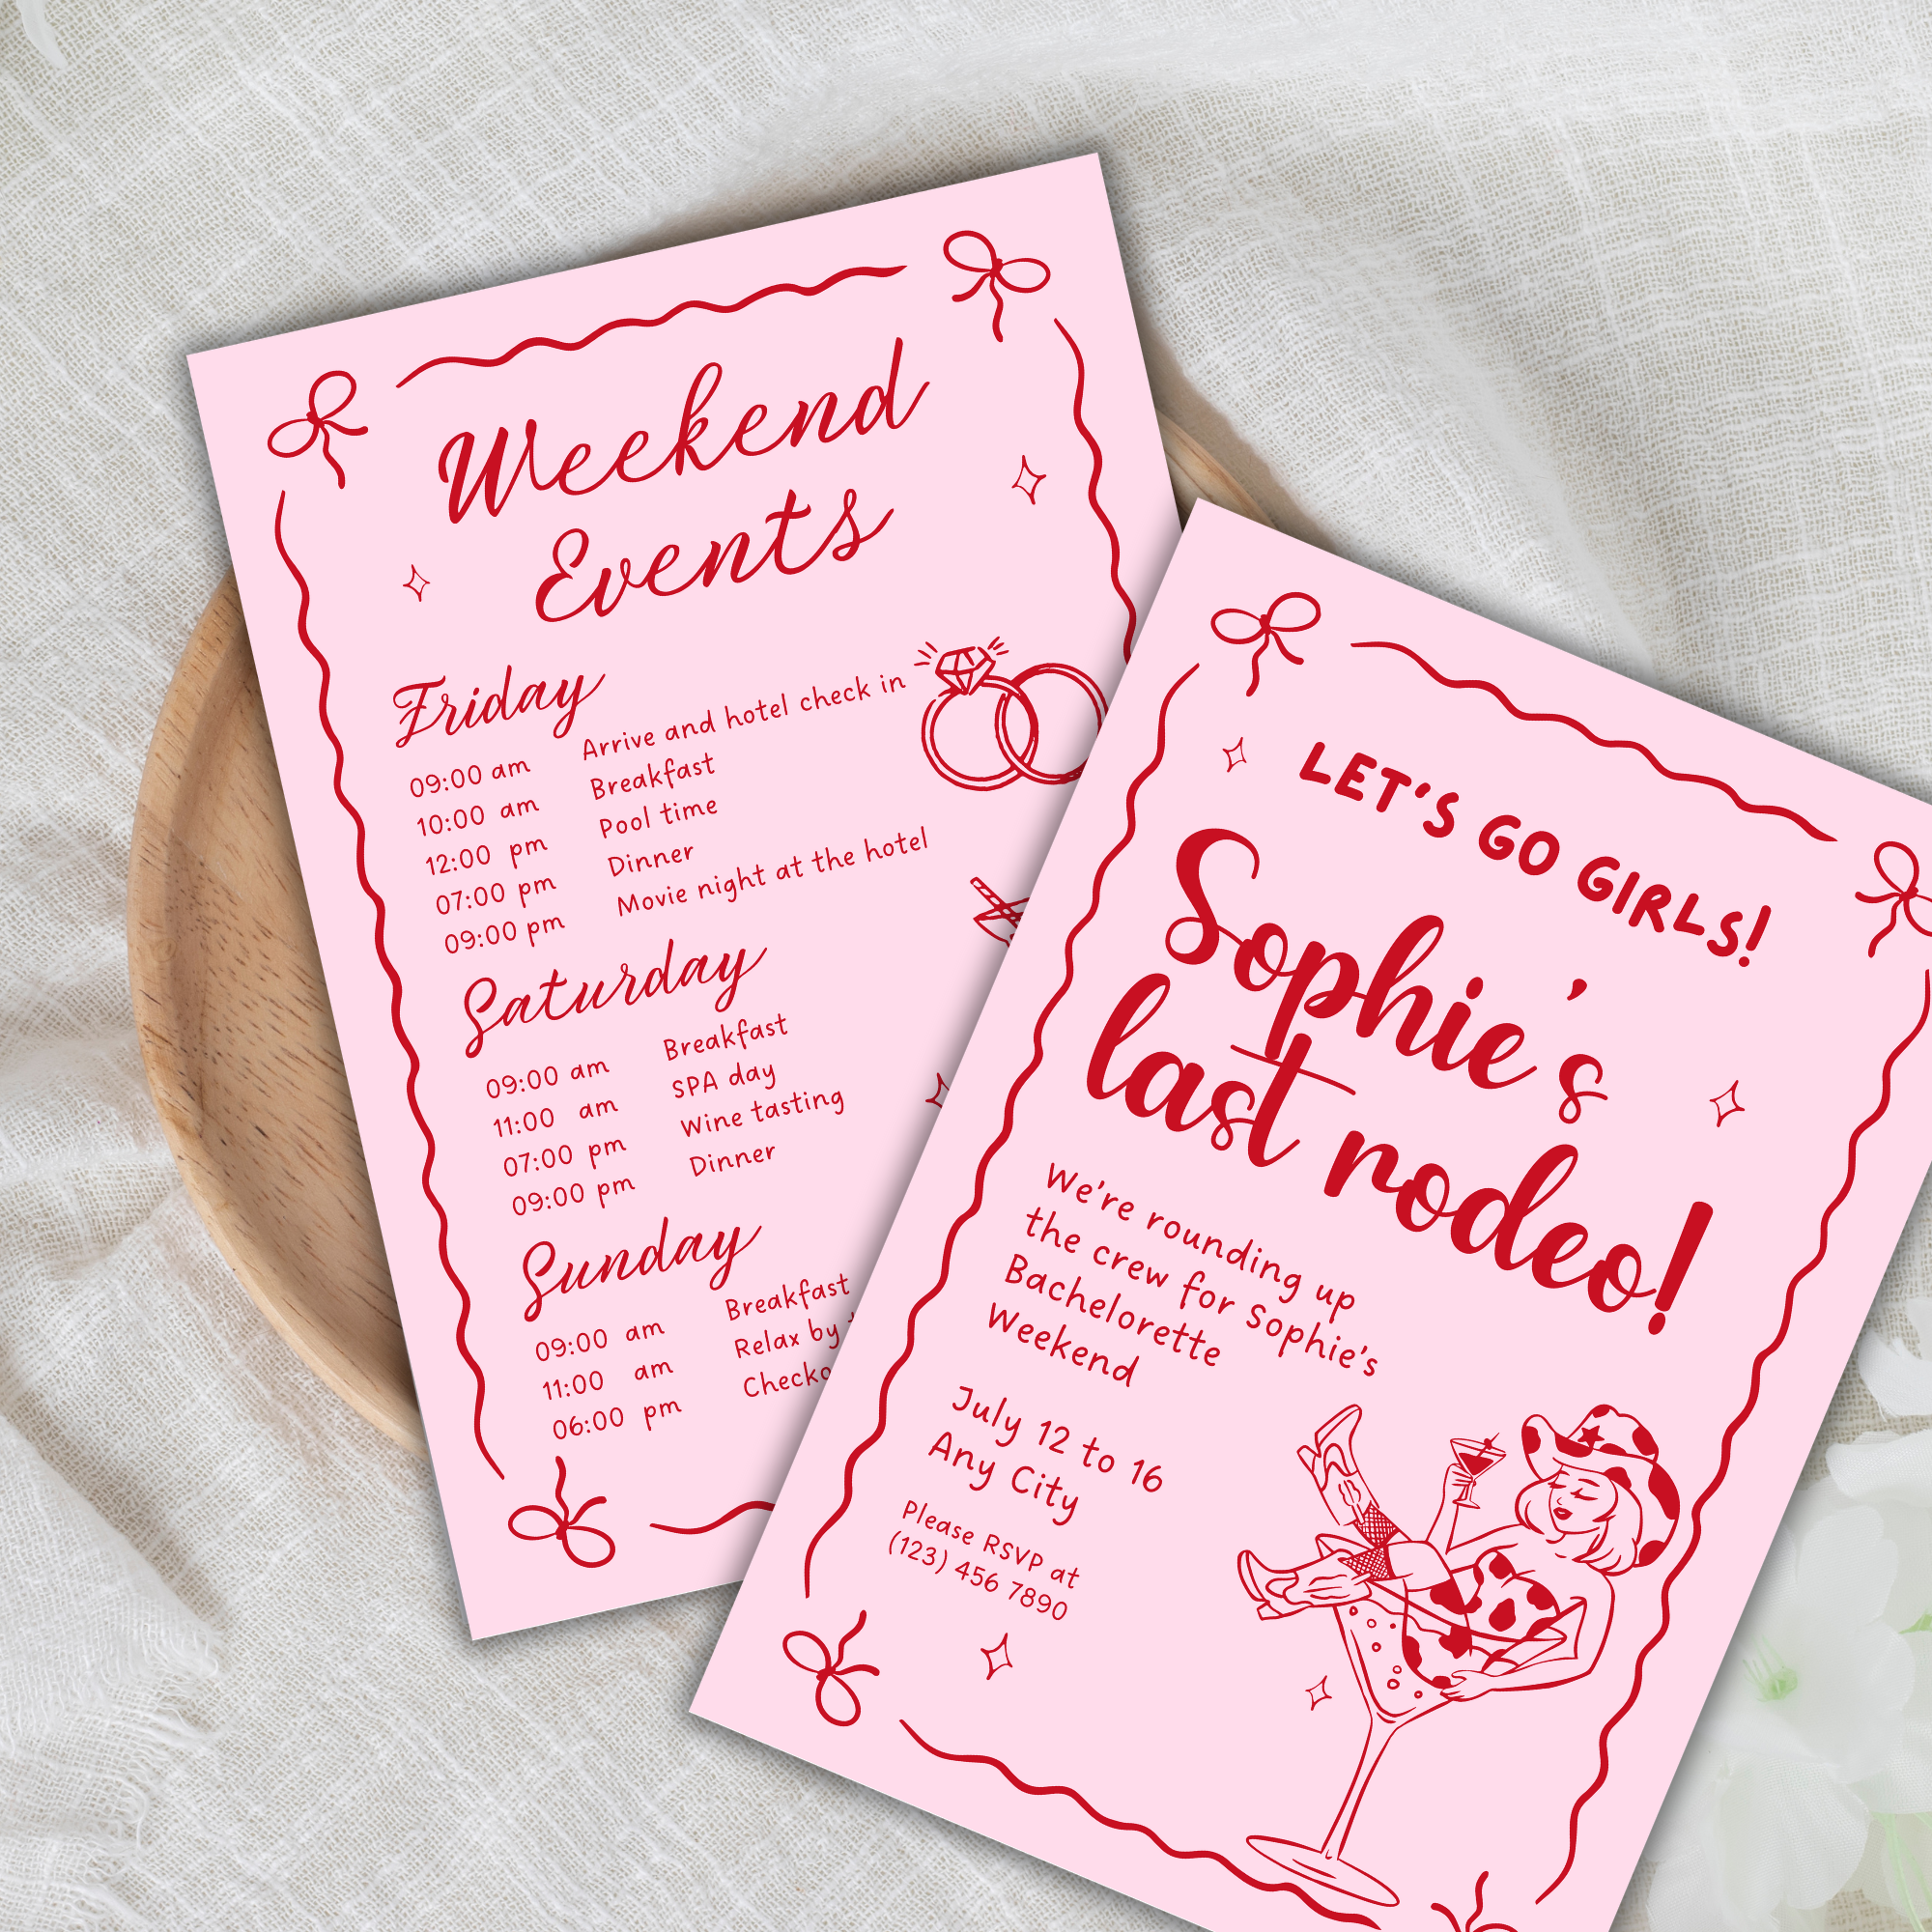 Weekend
Events
Friday
09:00 am Arrive and hotel check in
10:00 am Breakfast
12:00 pm Pool time
07:00 pm Dinner
09:00 pm Movie night at the hotel
Saturday
09:00 am Breakfast
11:00 am SPA day
07:00 pm Wine tasting
09:00 pm Dinner
Sunday
09:00 am Breakfast
11:00 am Relax by
06:00 pm
LET'S GO GIRLS!
Sophie's
last rodeo!
We're rounding up
the crew for Sophie's
Bachelorette
Weekend
July 12 to 16
Any City
Please RSVP at
(123) 456 7890